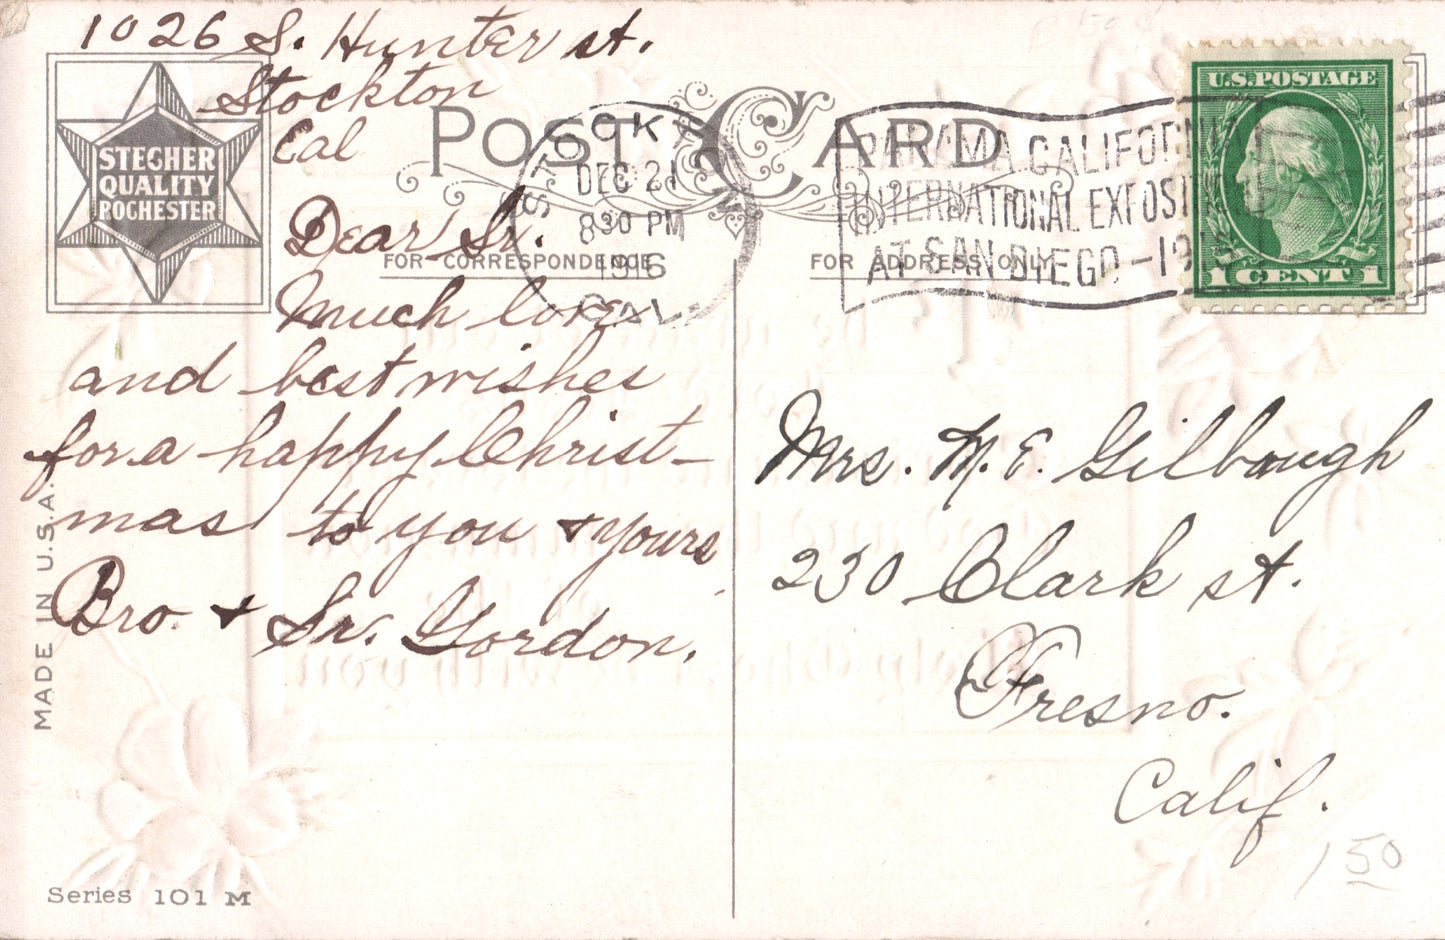 1026 S. Hunter st.
Stockton
Cal
STECHER
QUALITY
ROCHESTER
POST CARD
STOCKTON
DEC 21
830 PM
1916
CAL.
PANAMA-CALIFORNIA
INTERNATIONAL EXPOSITION
AT SAN DIEGO-1916
U.S.POSTAGE
1 CENT 1
FOR CORRESPONDENCE
FOR ADDRESS ONLY
Dear Sr.
Much love
and best wishes
for a happy Christ-
mas to you & yours
Bro. & Sr. Gordon.
Mrs. M. E. Gilbaugh
230 Clark st.
Fresno.
Calif.
150
MADE IN U.S.A.
Series 101 M